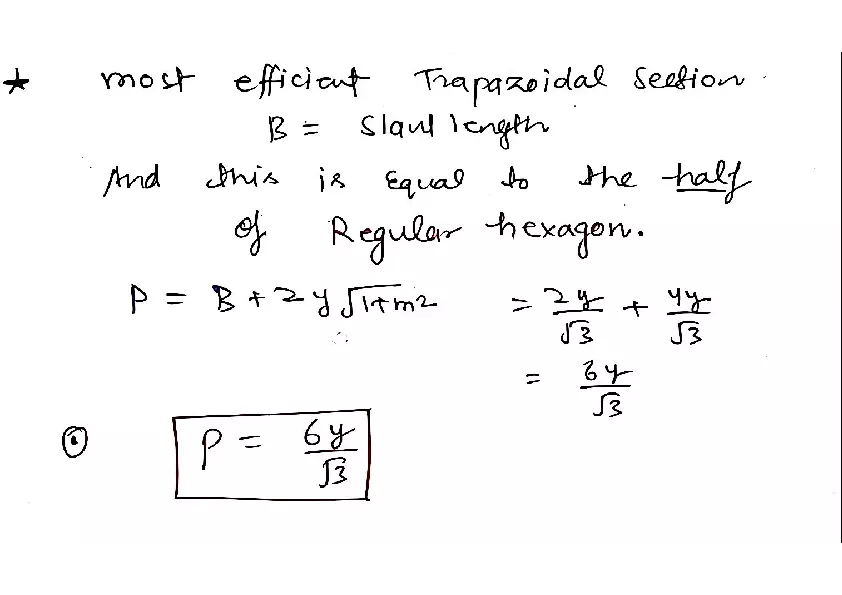 ★ most efficient Trapazoidal Section.
B = Slant length
And this is Equal to the half
of Regular hexagon.
P = B + 2y√1+m2 = 2y/√3 + 4y/√3
= 6y/√3
P = 6y/√3